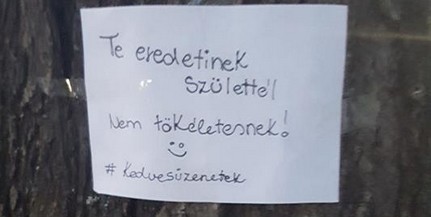 Te eredetinek
Születtél
Nem tökéletesnek!
# Kedvesüzenetek